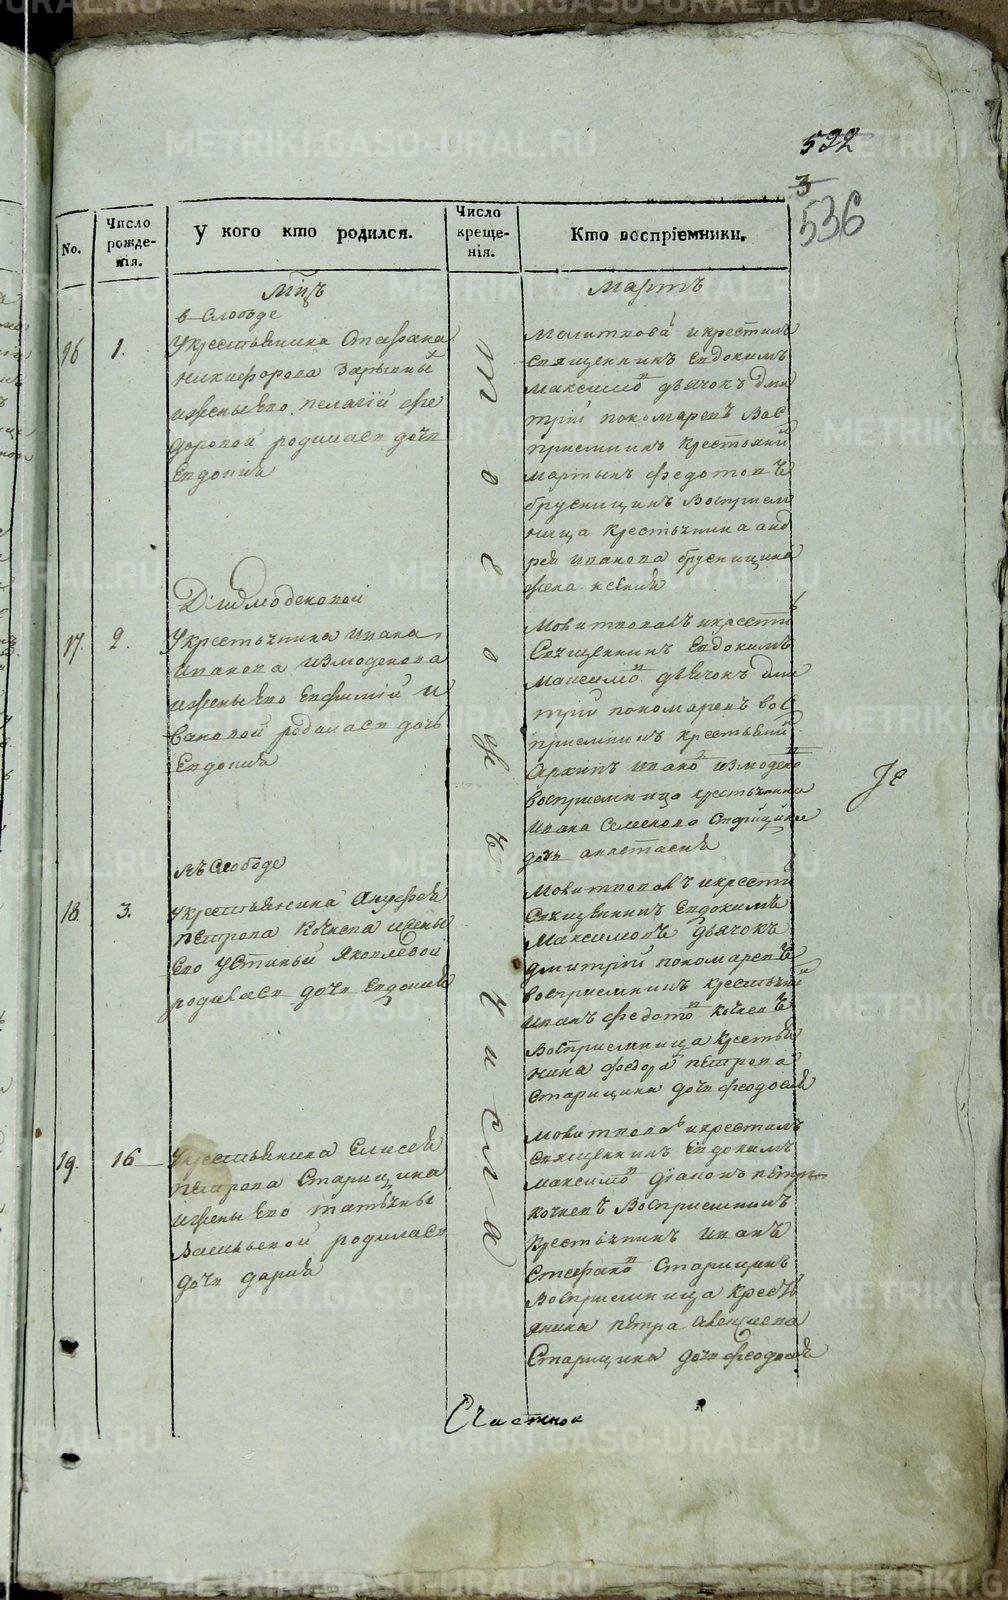 METRIKI.GASO-URAL.RU
532
3
536
No.
Число рожде-нія.
У кого кто родился.
Число креще-нія.
Кто воспріемники.
Мцъ
Мартъ
в Слободе
16
1.
Укрестьянина Стефана
Никифорова
ижены Его пелагіи фе
доровой родилась дочь
Евдокия
того жъ числа
Молитвовалъ икрестилъ
Священникъ Евдокимъ
Максимов дьячок дми
трій пономарев Вос
приемникъ крестьянин
мартынъ федотовъ
брусницинъ Восприем
ница крестьянина анд
рея иванова брусницина
жена ксения
17.
2.
Укрестьянина ивана
иванова измоденова
ижены Его Евфимии и
вановой родилась дочь
Евдокия
Молитвовалъ икрести
Священникъ Евдокимъ
Максимов дьячок дми
трій пономарев вос
приемникъ крестьянин
Архипъ иванов измоден
восприемница крестьянина
ивана Семенова Старицина
дочь анастасия
въ Слободе
18.
3.
Укрестьянина
петрова Кочнева ижены
Его Устиньи Яковлевой
родилась дочь Евдокия
Молитвовалъ икрести
Священникъ Евдокимъ
Максимовъ Дьячокъ
дмитрій пономаревъ
восприемникъ крестьянин
иванъ федотов кочневъ
Восприемница крестья
нина федора петрова
Старицина дочь феодосия
19.
16
Укрестьянина Елисея
петрова Старицина
ижены Его татьяны
Васильевой родилась
дочь дария
Молитвовалъ икрестилъ
Священникъ Евдокимъ
Максимов діаконъ петръ
кочневъ Восприемникъ
Крестьянинъ иванъ
Стефанов Старицинъ
Восприемница крестъ
янина петра
Старицина дочь